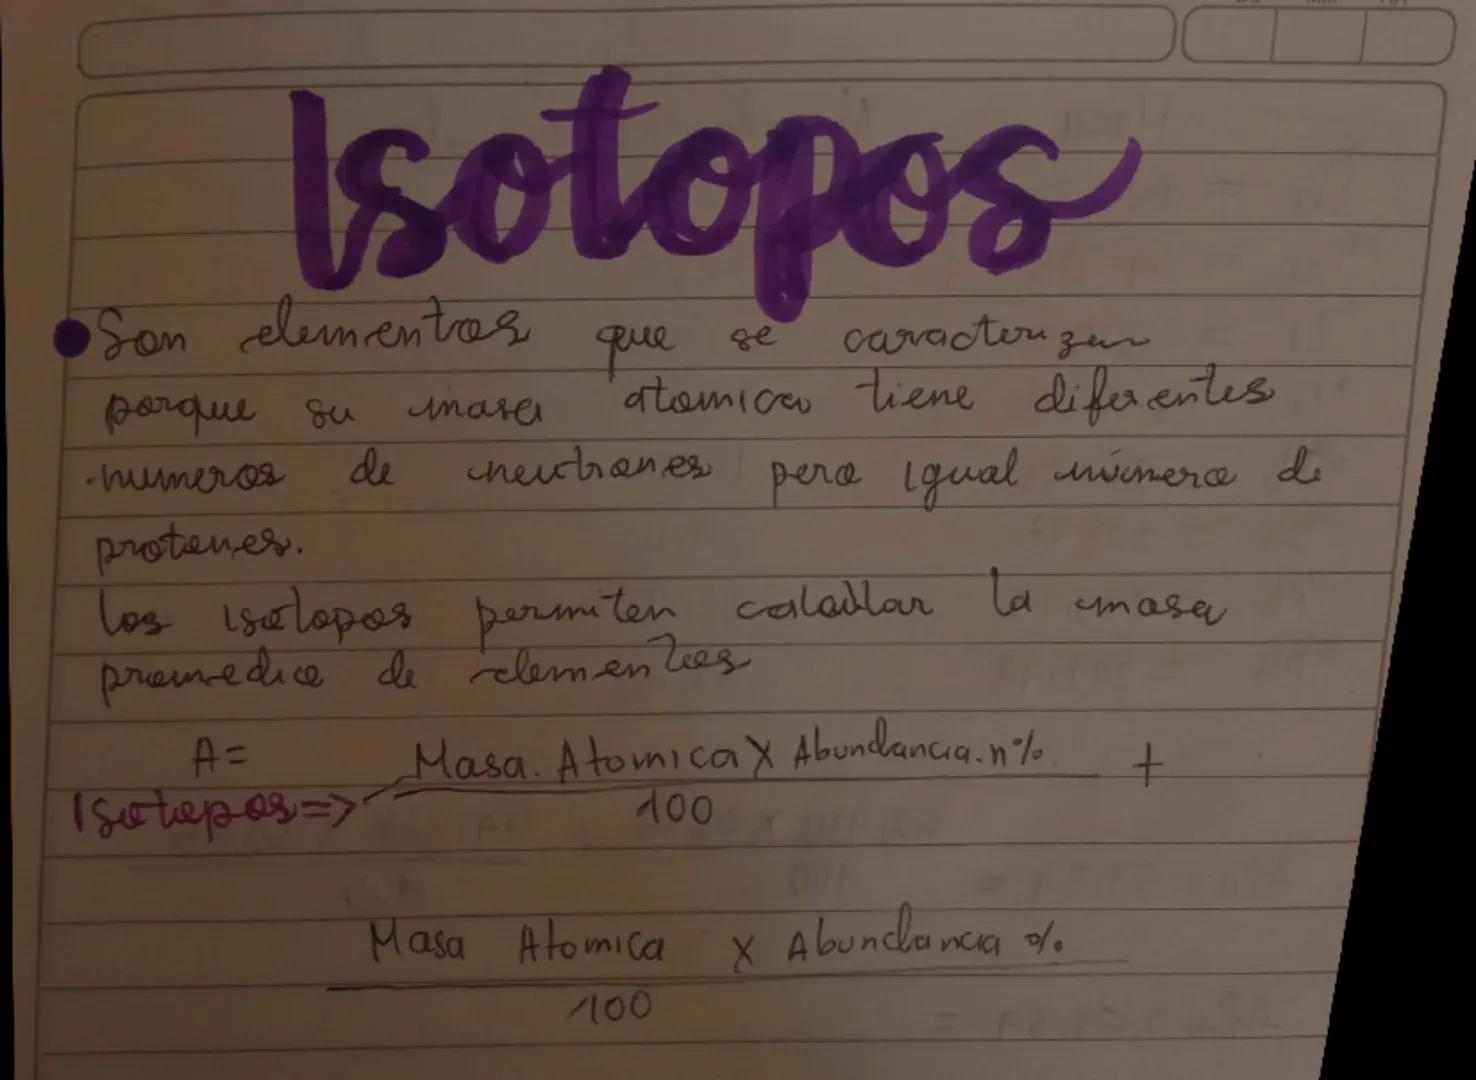 Isotopos
Son elementos que se caracterizan
porque su masa atomica tiene diferentes
numeros de neutrones pero igual número de
protones.
los isotopos permiten calcular la masa
promedio de elementos
A= Masa. Atomica X Abundancia.n% +
Isotopos=> 100
Masa Atomica X Abundancia %
100